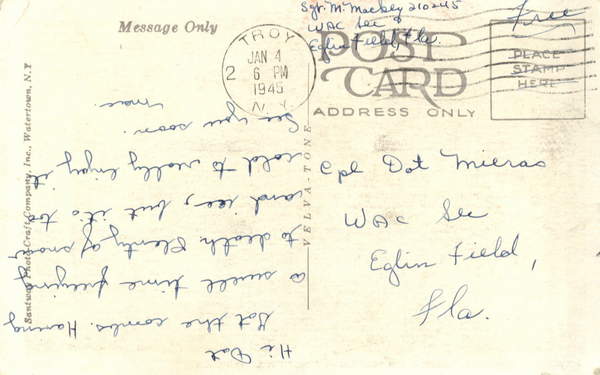 Message Only
Sgt. M. Mackey 210245
WAC Sec
Eglin Field, Fla.
Free
TROY
JAN 4
2 6 PM
1945
N.Y.
POST
CARD
ADDRESS ONLY
PLACE
STAMP
HERE
Cpl Dot Micras
WAC Sec
Eglin Field,
Fla.
Hi Dot
Got the combs. Having
a swell time freezing
to death. Plenty of snow
and ice, but it's too
cold to really enjoy it.
See you soon.
Mac.
VELVA-TONE
Santway Photo-Craft Company, Inc., Watertown, N.Y.